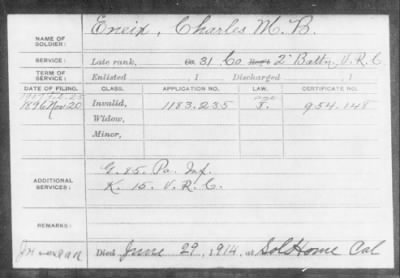 NAME OF SOLDIER: Eneix, Charles M. B.
SERVICE: Late rank, Co. 31 Co Reg't 2" Battn V.R.C.
TERM OF SERVICE: Enlisted , 1 Discharged , 1
DATE OF FILING. CLASS. APPLICATION NO. LAW. CERTIFICATE NO.
1896 Nov 20 Invalid, 1183.235 954.148
Widow,
Minor,
ADDITIONAL SERVICES: G. 85. Pa. Inf.
K. 15. V.R.C.
REMARKS:
Died June 29, 1914, at Sol Home Cal